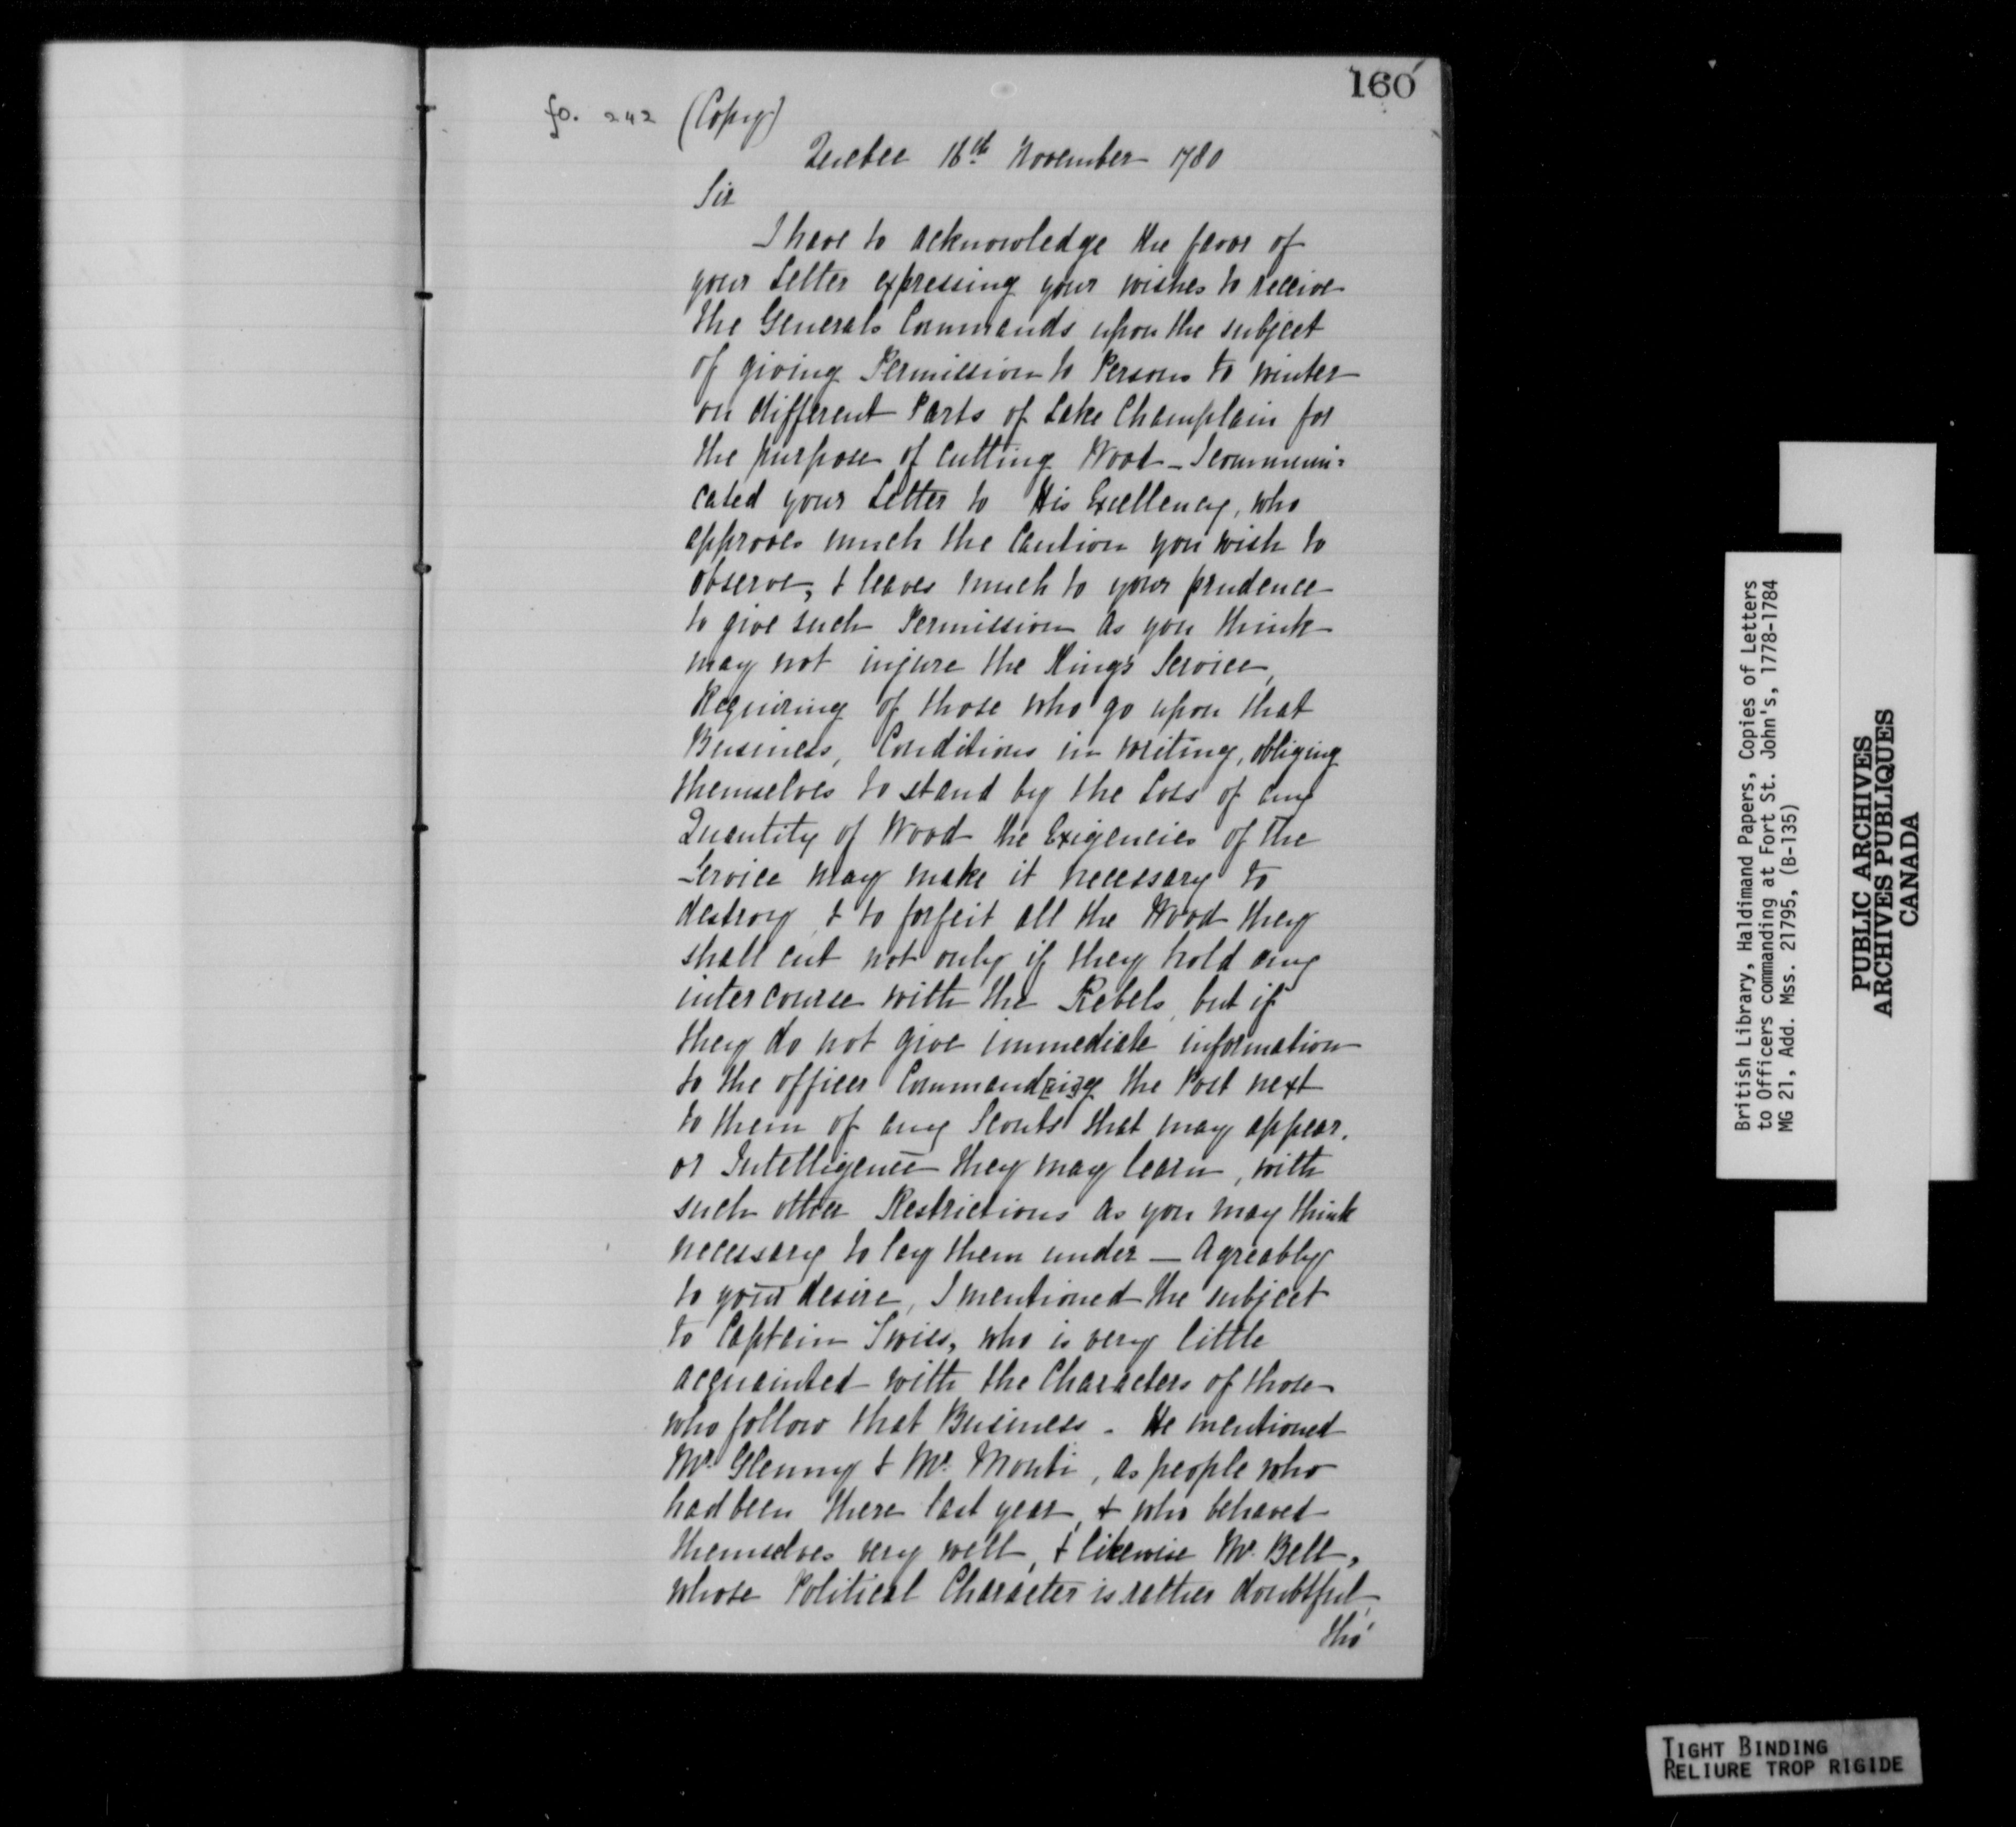 160
fo. 242 (Copy)
Quebec 16th November 1780
Sir
I have to acknowledge the favor of
your Letter expressing your wishes to receive
the Generals Commands upon the subject
of giving Permission to Persons to winter
on different Parts of Lake Champlain for
the purpose of cutting Wood _ I communi=
cated your Letter to His Excellency, who
approves much the Caution you wish to
observe, & leaves much to your prudence
to give such Permission as you think
may not injure the King's Service,
Requiring of those who go upon that
Business, Conditions in writing, obliging
themselves to stand by the Loss of any
Quantity of Wood the Exigencies of The
Service may make it necessary to
destroy, & to forfeit all the Wood they
shall cut not only if they hold any
intercourse with the Rebels, but if
they do not give immediate information
to the officer Command[in]g the Post next
to them of any Scouts that may appear,
or Intelligence they may learn, with
such other Restrictions as you may think
necessary to lay them under — Agreably
to your desire, I mentioned the subject
to Captain Twiss, who is very little
acquainted with the Characters of those
who follow that Business - He mentioned
Mr. Glenny & Mr. Monti, as people who
had been there last year, & who behaved
themselves very well, & likewise Mr. Bell,
whose Political Character is rather doubtful,
tho'
British Library, Haldimand Papers, Copies of Letters
to Officers commanding at Fort St. John's, 1778-1784
MG 21, Add. Mss. 21795, (B-135)
PUBLIC ARCHIVES
ARCHIVES PUBLIQUES
CANADA
TIGHT BINDING
RELIURE TROP RIGIDE